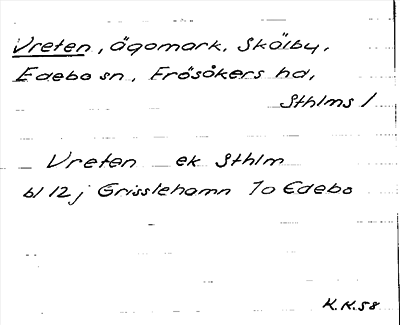 Vreten, ägomark, Skälby,
Edebo sn, Frösåkers hd,
Sthlms l
Vreten ek Sthlm
bl 12 j Grisslehamn 70 Edebo
K.K.58